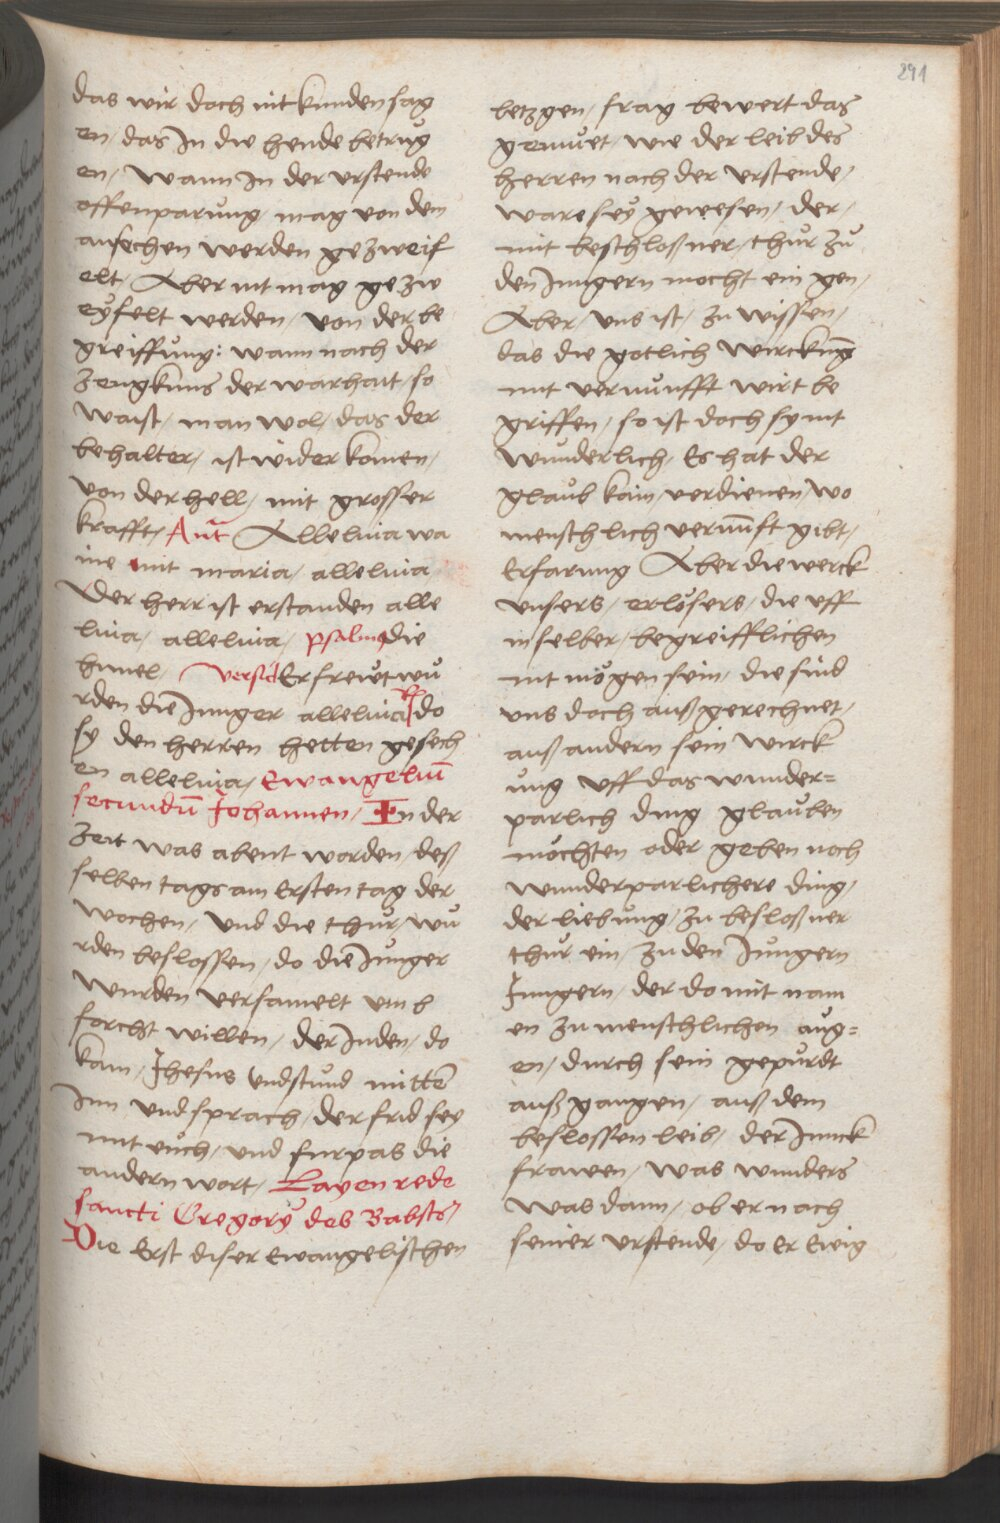 291
das wir doch nit kunden sag
en, das In die hende betrüg
en, wann In der vrstende
offenparung, mag von dem
ansechen werden gezweif
elt, Aber nit mag gezw
eÿfelt werden, von der be
greiffung: wann nach der
zeugknus der warhait, so
waist, man wol, das der
behalter, ist wider komen,
von der hell, mit grosser
krafft, Ant̃ Alleluia wa
ine nit maria, alleluia
Der herr ist erstanden alle
luia, alleluia, psalm die
himel, versicl Erfrewt wu
rden die Junger alleluia R do
sy den herren hetten gesech
en alleluia, Ewangeliū
secundū Johannen, In der
zeit was abent worden, deß
selben tags am Ersten tag der
wochen, vnd die thür, wu
rden beslossen, do die Junger
wurden versamelt vmb
forcht willen, der Juden, do
kam, Jhesus vnd stund mittē
Inn vnd sprach, der frid seÿ
mit euch, vnd furpas die
andern wort, Layen rede
sancti Gregorÿ des Babsts,
Die Erst diser Ewangelischen
letzgen, frag bewert das
gemüet, wie der leib des
herren nach der vrstende,
ware seÿ gewesen, der,
mit beschloßner, thür zu
den Jungern mocht ein gen,
Aber, vns ist, zu wissen,
das die gotlich wirckūg
mit vernunfft wirt be
griffen, so ist doch sy nit
wunderlich, Es hat der
glaub kain, verdienen, wo
menschlich vernūft gibt,
Erfarung Aber die werck
vnsers, erlösers, die vff
in selber, begreifflichen
nit mögen sein, die sind
vns doch auß gerechnet,
auß andern sein wirck
ung vff das wunder=
parlich ding glauben
möchten oder geben noch
wunderparlichere ding,
der liebung, zu besloßner
thür ein, zu den Jungern
Jungern, der do mit nam
en zu menschlichen aug=
en, durch sein gepurdt
auß gangen, auß dem
beslossen leib, der Junck
frawen, was wunders
was dann, ob er nach
seiner vrstende, do Er Ewig